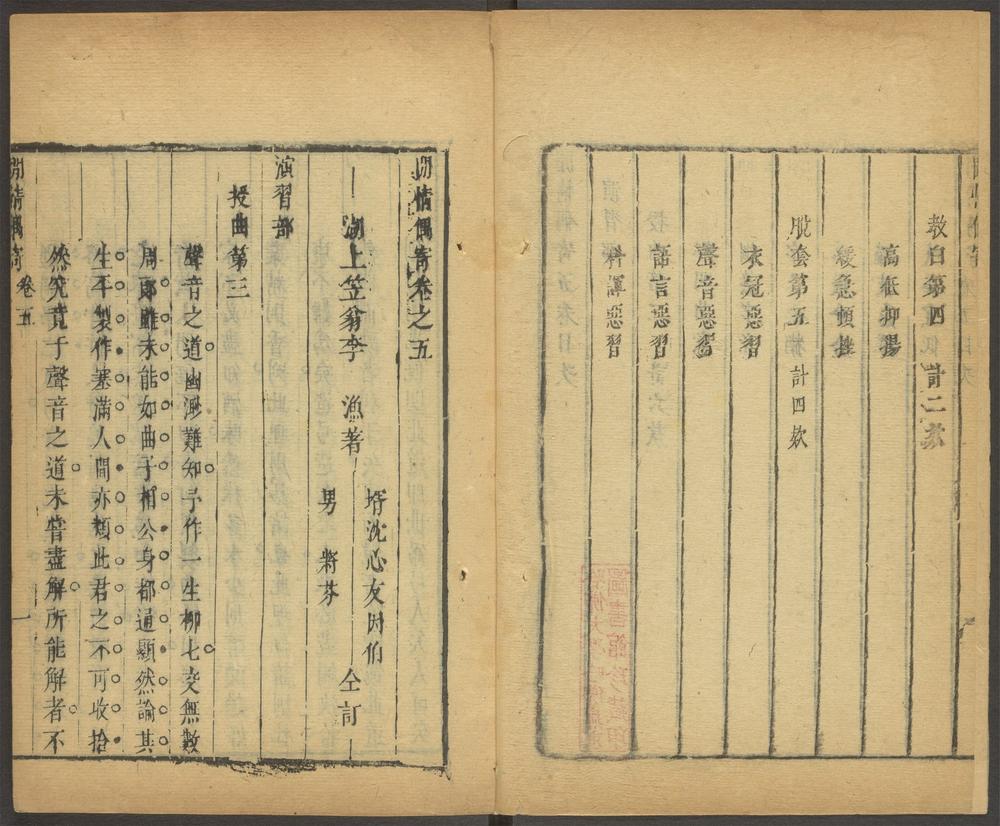 教白第四 計二款
高低抑揚
緩急頓挫
脫套第五 計四款
衣冠惡習
聲音惡習
語言惡習
科諢惡習
閒情偶寄卷之五
湖上笠翁李 漁著
壻沈心友因伯
男 將芬
仝訂
演習部
授曲第三
聲音之道幽渺難知予作一生柳七交無數
周郎雖未能如曲子相公身都通顯然論其
生平製作塞滿人間亦類此君之不可收拾
然究竟于聲音之道未嘗盡解所能解者不
閒情偶寄 卷五 一